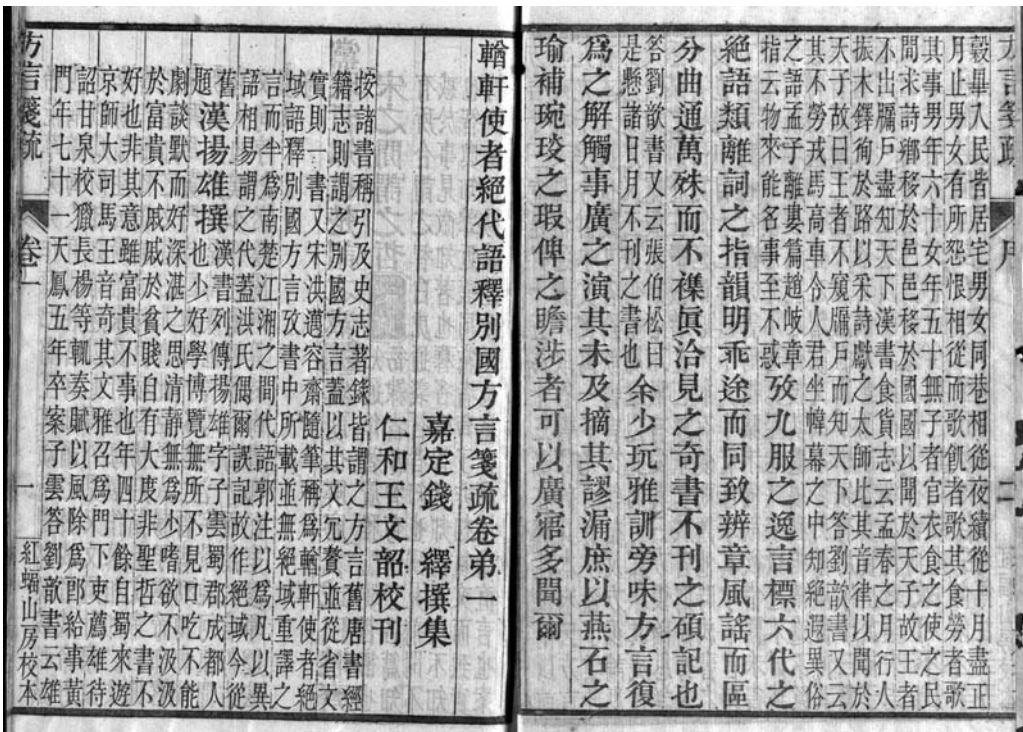 方言箋疏
序
二
穀畢入民皆居宅男女同巷相從夜績從十月盡正
月止男女有所怨恨相從而歌飢者歌其食勞者歌
其事男年六十女年五十無子者官衣食之使之民
間求詩鄉移於邑邑移於國國以聞於天子故王者
不出牖戶盡知天下漢書食貨志云孟春之月行人
振木鐸徇於路以采詩獻之太師比其音律以聞於
天子故曰王者不窺牖戶而知天下答劉歆書又云
其不勞戎馬高車令人君坐幃幕之中知絕遐異俗
之語孟子離婁篇趙岐章
指云物來能名事至不惑
攷九服之逸言標六代之
絕語類離詞之指韻明乖途而同致辨章風謠而區
分曲通萬殊而不襍眞洽見之奇書不刊之碩記也
答劉歆書又云張伯松曰
是懸諸日月不刊之書也
余少玩雅訓旁味方言復
爲之解觸事廣之演其未及摘其謬漏庶以燕石之
瑜補琬琰之瑕俾之瞻涉者可以廣寤多聞爾
輶軒使者絕代語釋別國方言箋疏卷弟一
嘉定錢　繹撰集
仁和王文韶校刊
按諸書稱引及史志著錄皆謂之方言舊唐書經
籍志則謂之別國方言蓋以其文冗贅並從省文
實則一書又宋洪邁容齋隨筆稱爲輶軒使者絕
域語釋別國方言攷書中所載並無絕域重譯之
言而半爲南楚江湘之間代語郭注以爲凡以異
語相易謂之代蓋洪氏偶爾誤記故作絕域今從
舊題
漢揚雄撰
漢書列傳揚雄字子雲蜀郡成都人
也少好學博覽無所不見口吃不能
劇談默而好深湛之思清靜無爲少嗜欲不汲汲
於富貴不戚戚於貧賤自有大度非聖哲之書不
好也非其意雖富貴不事也年四十餘自蜀來遊
京師大司馬王音奇其文雅召爲門下吏薦雄待
詔甘泉校獵長楊等輒奏賦以風除爲郎給事黃
門年七十一天鳳五年卒案子雲答劉歆書云雄
方言箋疏
卷一
一
紅蝠山房校本